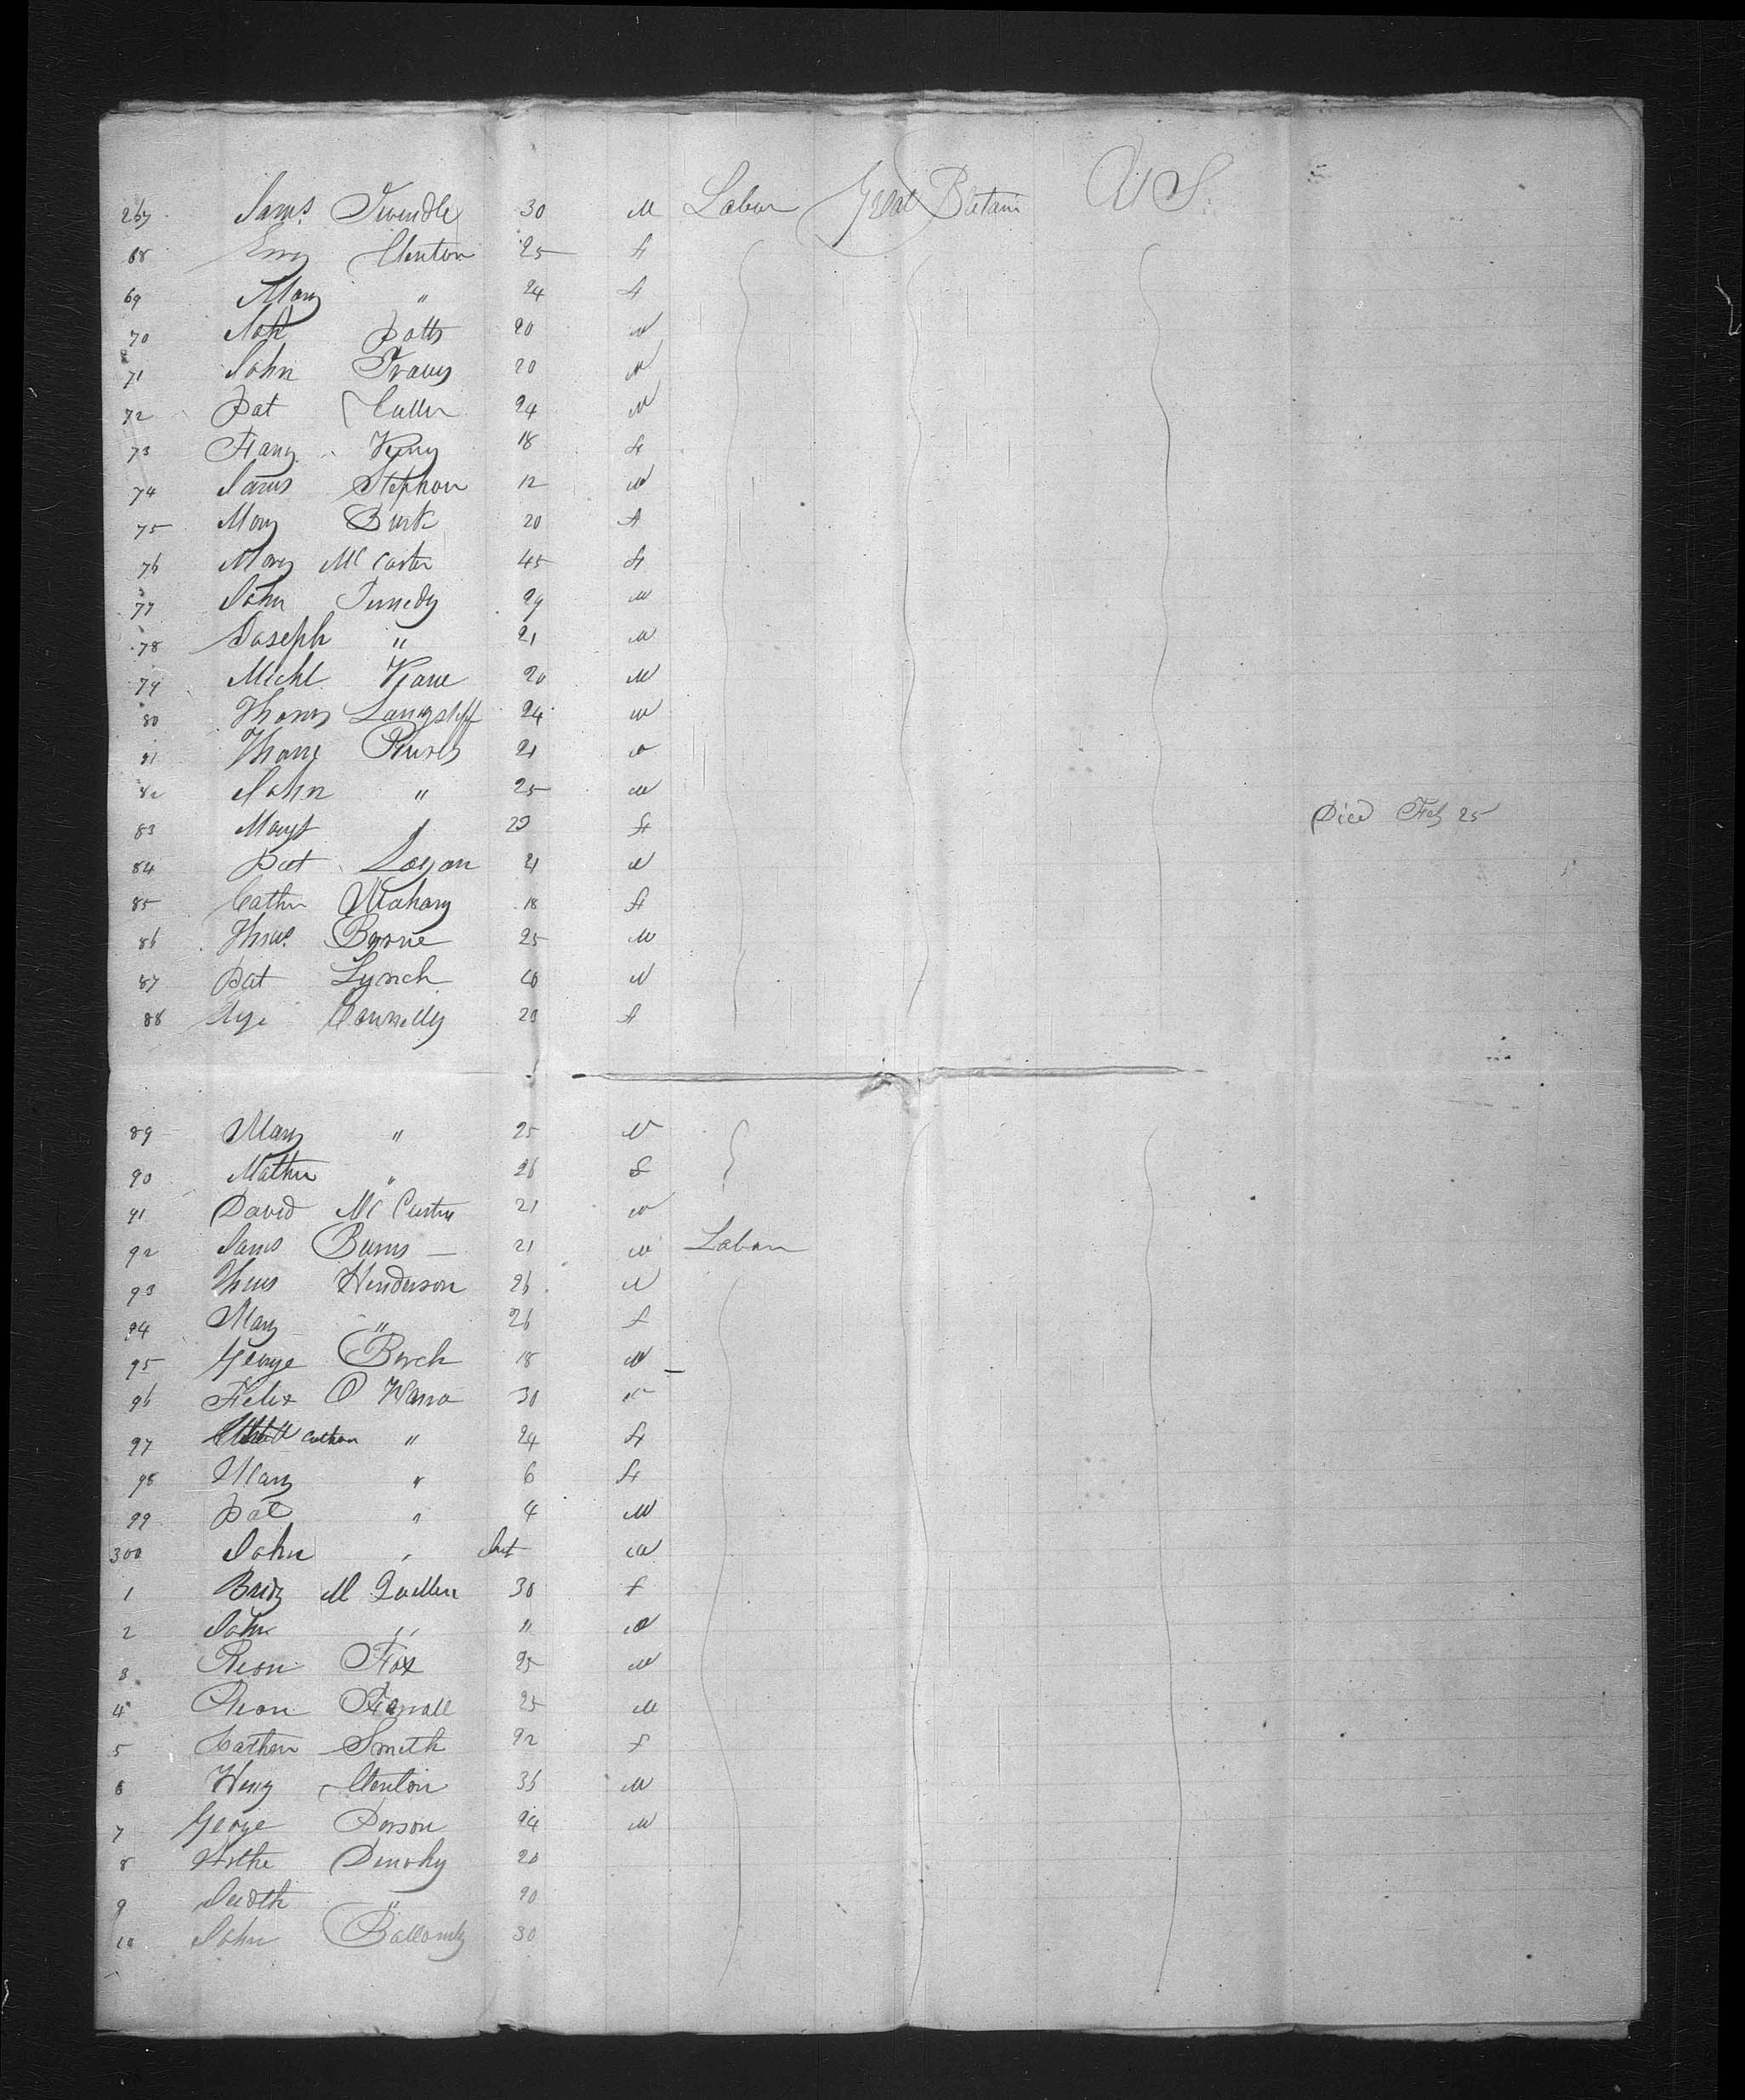 267 Jams Twindle 30 M Labor Great Britain U S
68 Clenton 25 f
69 Mary " 24 f
70 Potts 20 M
71 John Travis 20 M
72 Pat Cullen 24 M
73 18 f
74 Jams Stephon 12 M
75 Mary Burk 20 f
76 Mary McCarter 45 f
77 John 29 M
78 Joseph " 21 M
79 Michl Kane 20 M
80 Thoms Langstff 24 M
81 21 M
82 John " 25 M
83 Margt " 23 f Died Feb 25
84 Pat Logan 21 M
85 Cathn Mahany 18 f
86 Thos Byrne 25 M
87 Pat Lynch 20 M
88 Connelly 20 f
89 Mary " 25 M
90 " 26 f
91 David Mc 21 M
92 Jams Burns — 21 M Labor
93 Thos Henderson 26 M
94 Mary " 26 f
95 George Birch 18 M
96 Felix O 30 M
97 " 24 f
98 Mary " 6 f
99 Pat " 4 M
300 John " Inft M
1 Bridg M 30 f
2 John " " M
3 Fox 25 M
4 Farrall 25 M
5 Cathern Smith 22 f
6 Heny Clenton 36 M
7 George Person 24 M
8 20
9 Judeth " 20
10 John 30